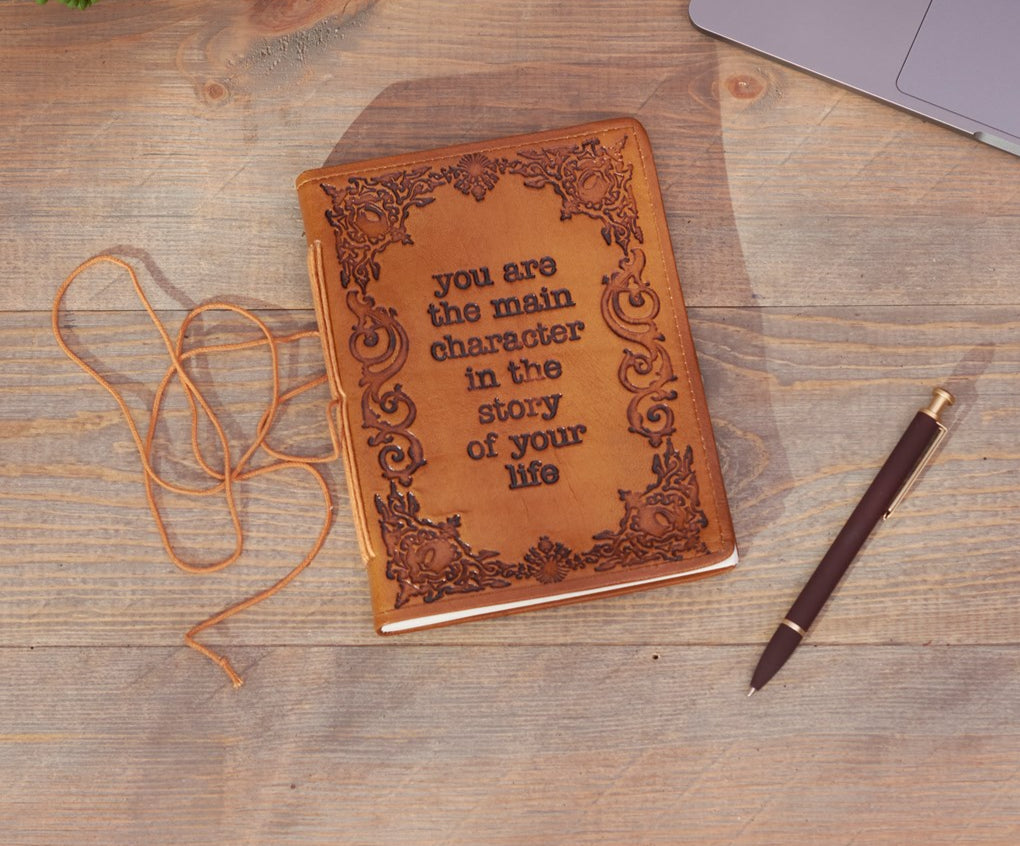 you are
the main
character
in the
story
of your
life